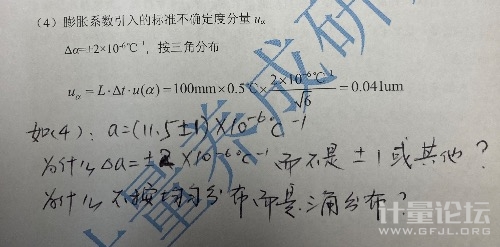 （4）膨胀系数引入的标准不确定度分量 uα
Δα=±2×10⁻⁶℃⁻¹，按三角分布
uα = L·Δt·u(α) = 100mm×0.5℃×2×10⁻⁶℃⁻¹/√6 = 0.041um
如(4)：a=(11.5±1)×10⁻⁶℃⁻¹
为什么Δa=±2×10⁻⁶℃⁻¹而不是±1或其他？
为什么不按均匀分布而是三角分布？
量养成研
计量论坛
WWW.GFJL.ORG